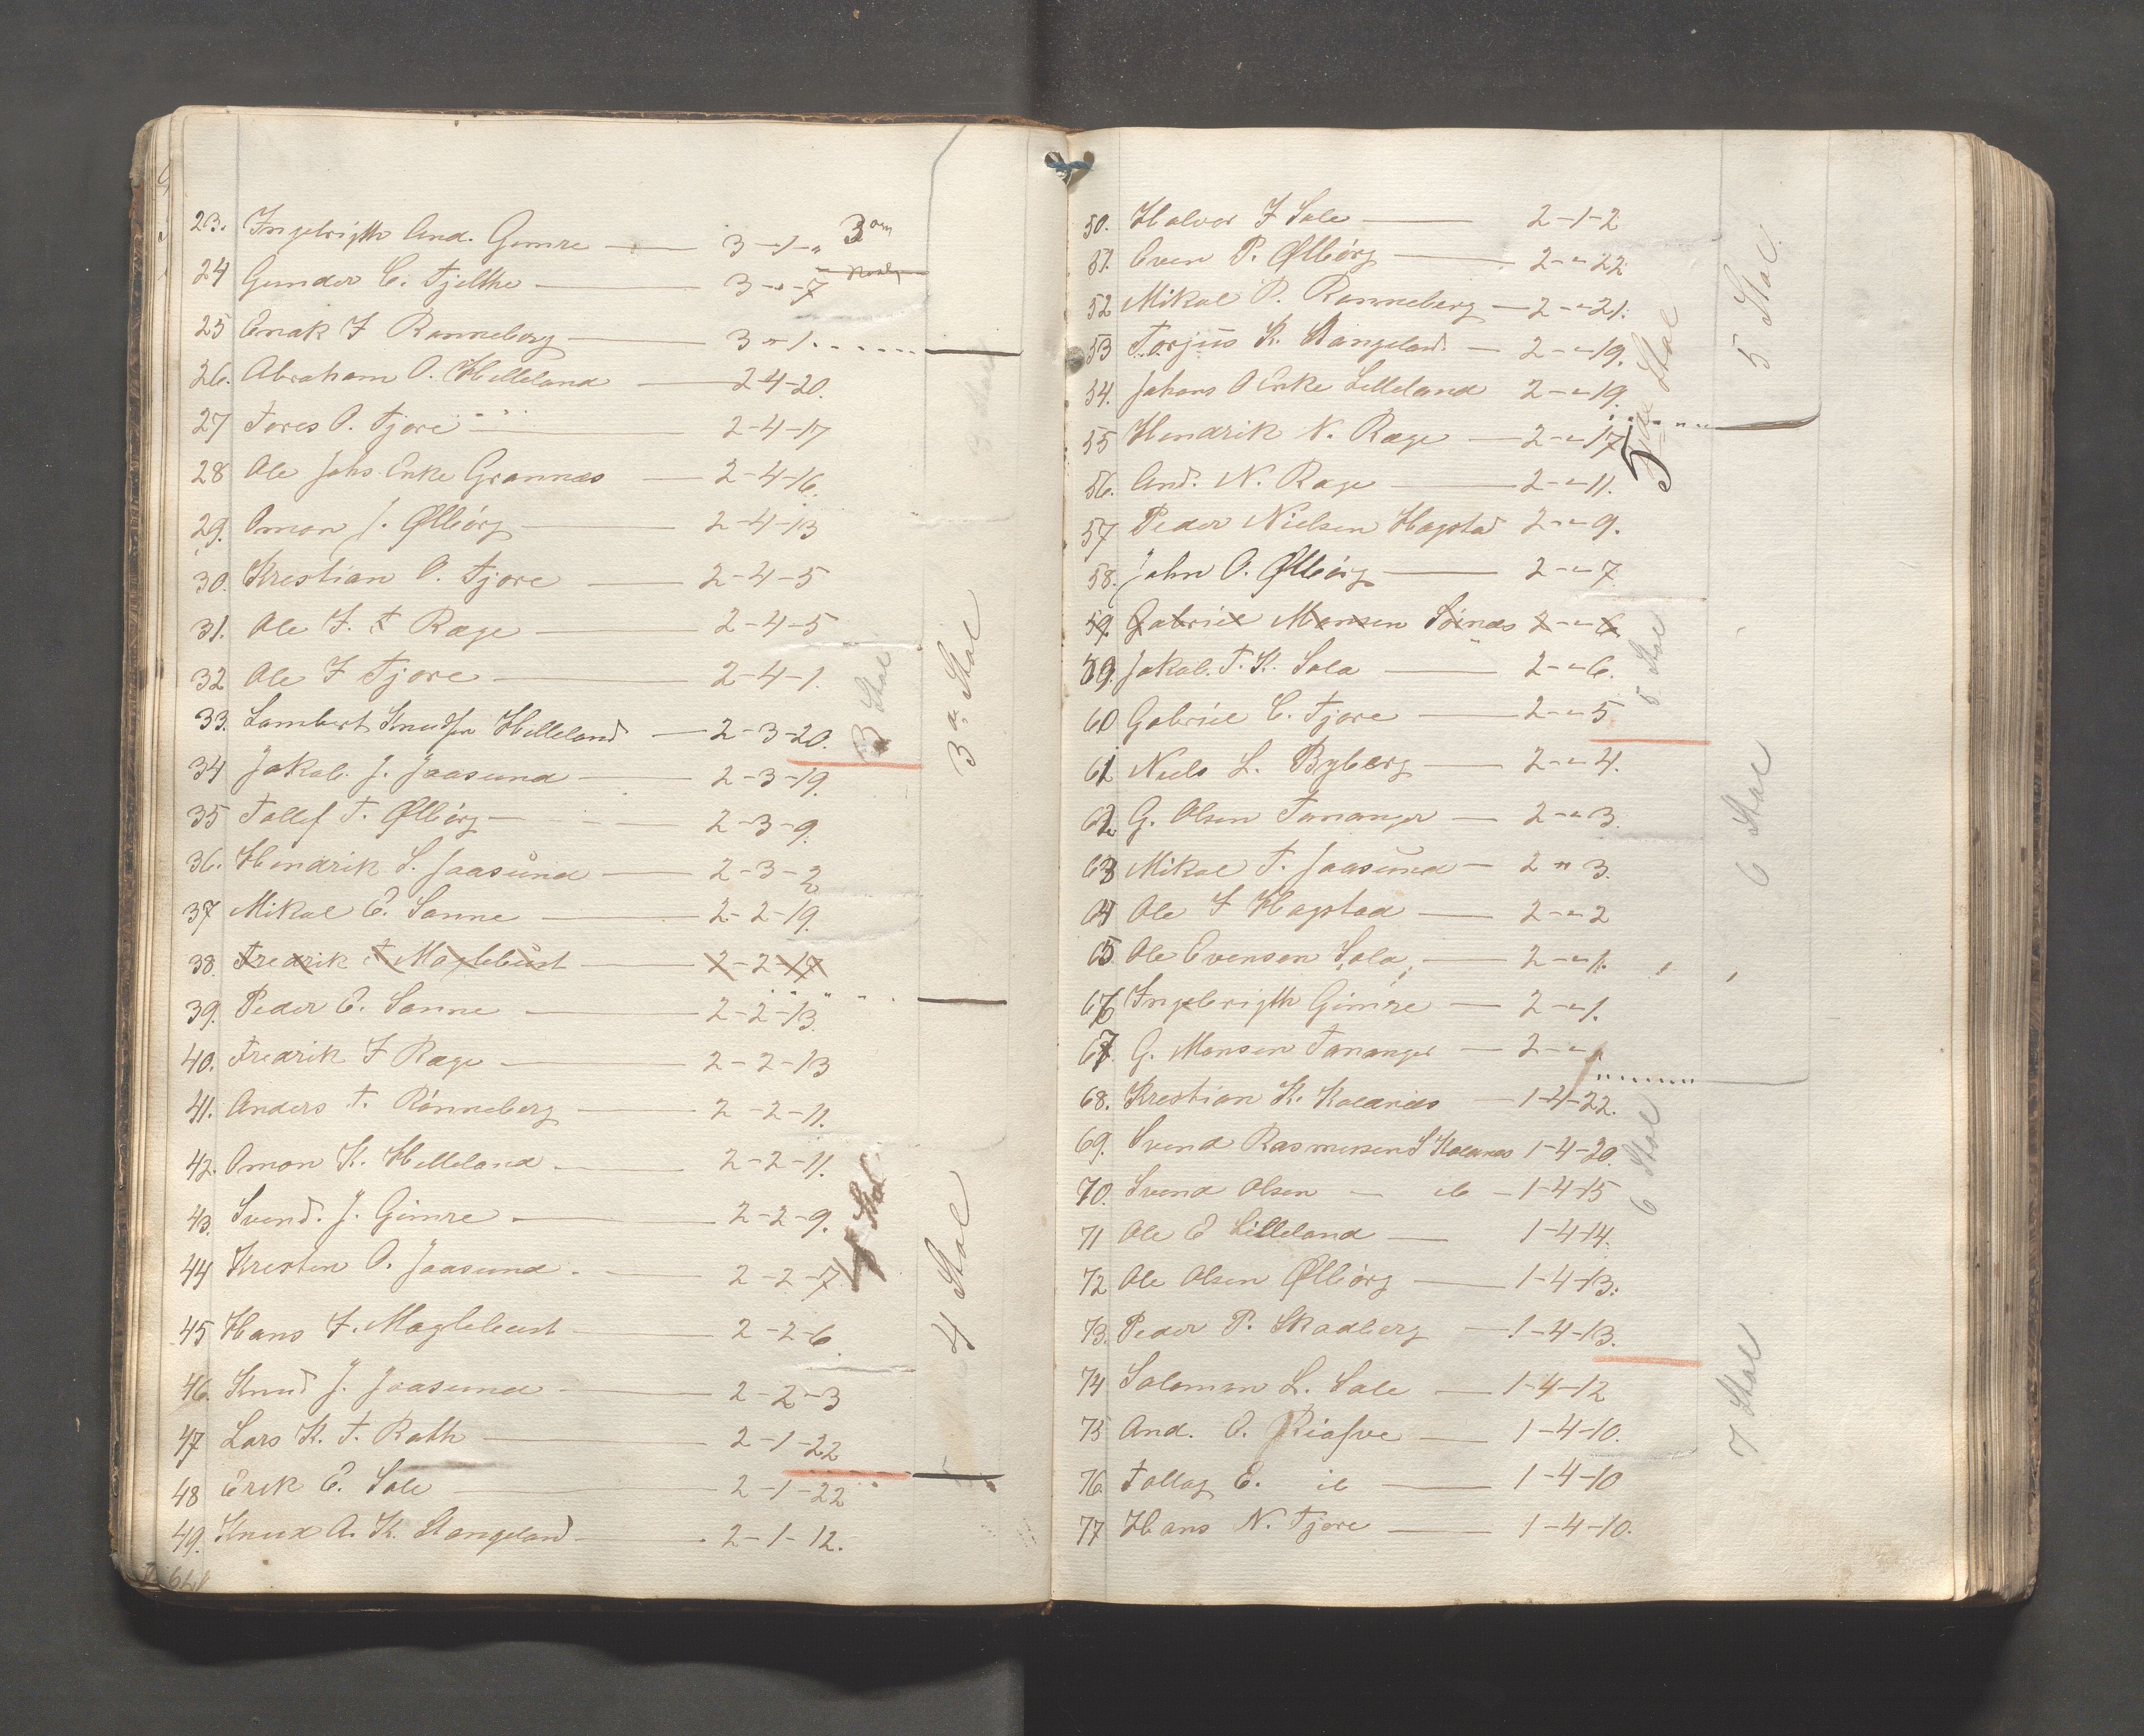 23. Ingebrigth And. Gimre — 3-1-" 3
24 Gunder C. Tjelthe — 3-"-7
25 Enak F Rønneberg — 3-"-1.
26. Abraham O. Helleland — 2-4-20.
27 Tores O. Tjore — 2-4-17
28 Ole Johs Enke Grannæs — 2-4-16.
29. Omon J. Ølbörg — 2-4-13
30. Krestian O. Tjore — 2-4-5
31. Ole F. T Ræge — 2-4-5
32 Ole F Tjore — 2-4-1.
33. Lambert Knudsen Helleland — 2-3-20.
3 Stol
3 Stol
34 Jakob. J. Jaasund — 2-3-19.
35 Tollef T. Ølbörg — 2-3-9.
36. Hendrik S. Jaasund — 2-3-2
37 Mikal E. Sønne — 2-2-19.
38. Fredrik T Maglebust — 2-2-17
39. Peder E. Sønne — 2-2-13.
40. Fredrik F Ræge — 2-2-13
41. Anders T. Rönneberg — 2-2-11.
42. Omon K. Helleland — 2-2-11.
43. Svend. J. Gimre — 2-2-9.
4 Stol
44 Kresten O. Jaasund — 2-2-7
45 Hans F. Maglebust — 2-2-6.
4 Stol
46. Knud J. Jaasund — 2-2-3
47 Lars K. T. Roth — 2-1-22
48 Erik E. Sole — 2-1-22
49. Knud A. K. Stangeland — 2-1-12.
50. Halvor F Sole — 2-1-2
51. Even P. Ølbörg — 2-"-22
52 Mikal P. Rønneberg — 2-"-21.
5 Stol
53 Torjus K. Stangeland. — 2-"-19.
54. Johans O Enke Lilleland 2-"-19.
Stol
55 Hendrik N. Ræge — 2-"-17
56. And. N. Ræge — 2-"-11.
57 Peder Nielsen Hagstad 2-"-9.
58. John O. Ølbörg — 2-"-7
59. Gabriel Monsen Söinæs 2-"-6
59. Jakob. T. K. Sola — 2-"-6.
5 Stol
60 Gabriel C. Tjore — 2-"-5
61 Niels L. Byberg — 2-"-4.
62. G. Olsen Tananger — 2-"-3.
6 Stol
63 Mikal T. Jaasund — 2 " 3.
64 Ole F Hagstad — 2-"-2
65 Ole Evensen Sola — 2-"-1.
66 Ingebrigth Gimre — 2-"-1.
67. G. Monsen Tananger — 2-"-
68. Krestian K. Kolnæs — 1-4-22.
69. Svend Rasmussen S Kolnæs 1-4-20.
6 Stol
70. Svend Olsen — ib — 1-4-15
71 Ole E Lilleland — 1-4-14.
72 Ole Olsen Ølbörg — 1-4-13.
73. Peder P. Skadberg — 1-4-13.
74 Salomon L. Sole — 1-4-12
7 Stol
75 And. O. — 1-4-10.
76. Tollag E. ib — 1-4-10
77 Hans N. Tjore — 1-4-10.